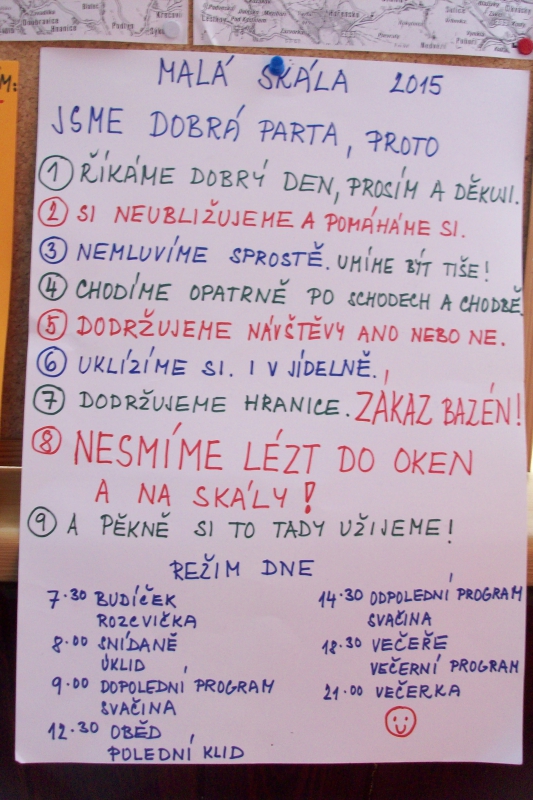 MALÁ SKÁLA 2015
JSME DOBRÁ PARTA, PROTO
1 ŘÍKÁME DOBRÝ DEN, PROSÍM A DĚKUJI.
2 SI NEUBLIŽUJEME A POMÁHÁME SI.
3 NEMLUVÍME SPROSTĚ. UMÍME BÝT TIŠE!
4 CHODÍME OPATRNĚ PO SCHODECH A CHODBĚ.
5 DODRŽUJEME NÁVŠTĚVY ANO NEBO NE.
6 UKLÍZÍME SI. I V JÍDELNĚ.
7 DODRŽUJEME HRANICE. ZÁKAZ BAZÉN!
8 NESMÍME LÉZT DO OKEN
A NA SKÁLY!
9 A PĚKNĚ SI TO TADY UŽIJEME!
REŽIM DNE
7.30 BUDÍČEK
ROZCVIČKA
8.00 SNÍDANĚ
ÚKLID
9.00 DOPOLEDNÍ PROGRAM
SVAČINA
12.30 OBĚD
POLEDNÍ KLID
14.30 ODPOLEDNÍ PROGRAM
SVAČINA
18.30 VEČEŘE
VEČERNÍ PROGRAM
21.00 VEČERKA